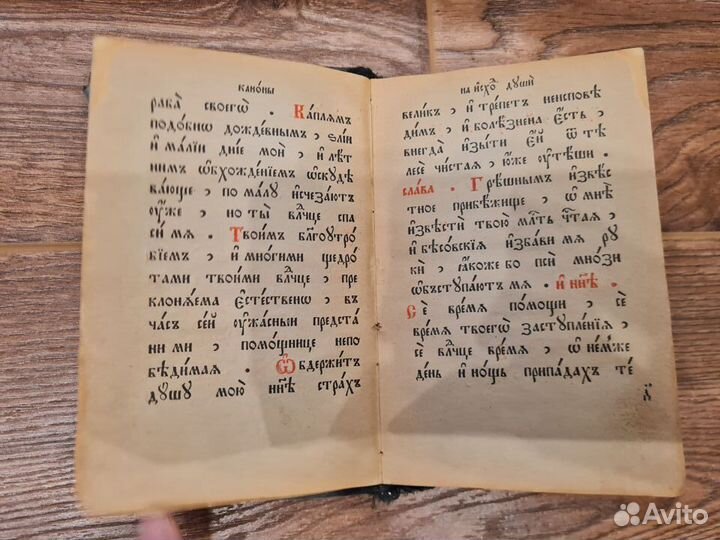 КАНО́НЫ
рака̀ своегѡ̀ . Ка́плѧмъ
подо́бнѡ дожде́внымъ , ѕлі́и
и҆ ма́лїи дні́е мои̑ , и҆ лѣ́т
нимъ ѡ҆бхожде́нїемъ ѡ҆скꙋдѣ
ва́юще , по ма́лꙋ и҆счеза́ютъ
ᲂу҆жѐ , но ты̀ влⷣчце спа
си́ мѧ . Твои́мъ благоꙋтро́
бїемъ , и҆ мно́гими щедро́
тами твои́ми влⷣчце , пре
клонѧ́ема є҆сте́ственѡ , въ
ча́съ се́й ᲂу҆жа́сный предста́
ни ми , помо́щнице непо
бѣди́маѧ . Ѡ҆держи́тъ
дꙋ́шꙋ мою̀ нн҃ѣ стра́хъ
НА И҆СХО́Дⷮ ДꙊШЍ
вели́къ , и҆ тре́петъ неисповѣ́
ди́мъ , и҆ болѣ́знена є҆́сть ,
внегда̀ и҆зы́ти є҆́й ѿ тѣ
лесѐ чи́стаѧ , ю҆́же ᲂу҆тѣ́ши .
Сла́ва . Грѣ́шнымъ и҆звѣ́с
тное прибѣ́жище , ѡ҆ мнѣ̀
и҆звѣстѝ твою̀ млⷭ҇ть чⷭ҇таѧ ,
и҆ бѣсо́вскїѧ и҆зба́ви мѧ рꙋ
кѝ , ꙗ҆́коже бо псѝ мно́зи
ѡ҆бъстꙋпа́ютъ мѧ . И҆ нн҃ѣ
Сѐ вре́мѧ по́мощи , сѐ
вре́мѧ твоегѡ̀ застꙋпле́нїѧ ,
сѐ влⷣчце вре́мѧ , ѡ҆ не́мже
де́нь и҆ но́щь припа́дахъ те́
Avito